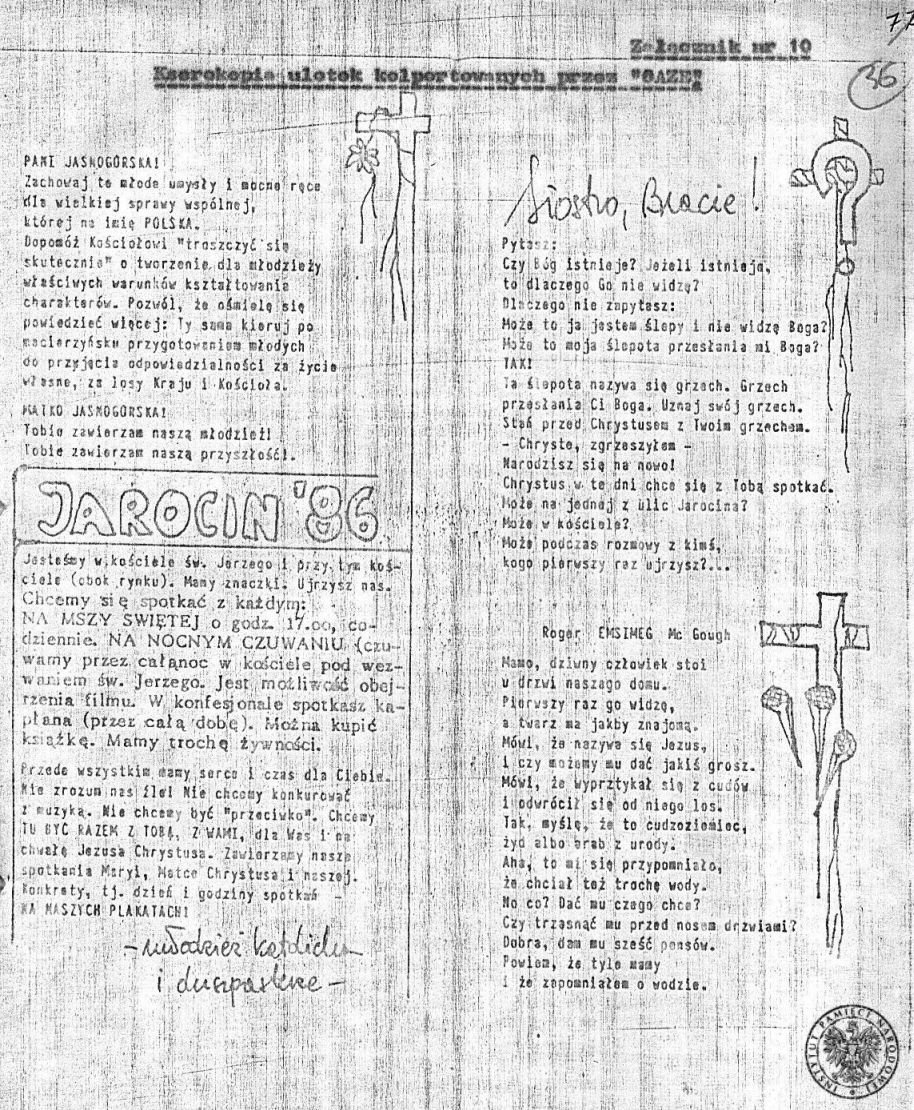 77
Załącznik nr 10
36
Kserokopia ulotek kolportowanych przez "OAZĘ"
PANI JASNOGÓRSKA!
Zachowaj te młode umysły i mocne ręce
dla wielkiej sprawy wspólnej,
której na imię POLSKA.
Dopomóż Kościołowi "troszczyć się
skutecznie" o tworzenie dla młodzieży
właściwych warunków kształtowania
charakterów. Pozwól, że ośmielę się
powiedzieć więcej: Ty sama kieruj po
macierzyńsku przygotowaniem młodych
do przyjęcia odpowiedzialności za życie
własne, za losy Kraju i Kościoła.
MATKO JASNOGÓRSKA!
Tobie zawierzam naszą młodzież!
Tobie zawierzam naszą przyszłość!.
JAROCIN '86
Jesteśmy w kościele św. Jerzego i przy tym koś-
ciele (obok rynku). Mamy znaczki. Ujrzysz nas.
Chcemy się spotkać z każdym:
NA MSZY ŚWIĘTEJ o godz. 17.oo, co-
dziennie. NA NOCNYM CZUWANIU (czu-
wamy przez całąnoc w kościele pod wez-
waniem św. Jerzego. Jest możliwość obej-
rzenia filmu. W konfesjonale spotkasz ka-
płana (przez całą dobę). Można kupić
książkę. Mamy trochę żywności.
Przede wszystkim mamy serce i czas dla Ciebie.
Nie zrozum nas źle! Nie chcemy konkurować
z muzyką. Nie chcemy być "przeciwko". Chcemy
TU BYĆ RAZEM Z TOBĄ, Z WAMI, dla Was i na
chwałę Jezusa Chrystusa. Zawierzamy nasze
spotkania Maryi, Matce Chrystusa i naszej.
Konkrety, tj. dzień i godziny spotkań -
NA NASZYCH PLAKATACH!
- młodzież katolicka
i duszpasterze -
Siostro, Bracie!
Pytasz:
Czy Bóg istnieje? Jeżeli istnieje,
to dlaczego Go nie widzę?
Dlaczego nie zapytasz:
Może to ja jestem ślepy i nie widzę Boga?
Może to moja ślepota przesłania mi Boga?
TAK!
Ta ślepota nazywa się grzech. Grzech
przesłania Ci Boga. Uznaj swój grzech.
Stań przed Chrystusem z Twoim grzechem.
- Chryste, zgrzeszyłem -
Narodzisz się na nowo!
Chrystus w te dni chce się z Tobą spotkać.
Może na jednej z ulic Jarocina?
Może w kościele?
Może podczas rozmowy z kimś,
kogo pierwszy raz ujrzysz?...
Roger EMSIMEG Mc Gough
Mamo, dziwny człowiek stoi
u drzwi naszego domu.
Pierwszy raz go widzę,
a twarz ma jakby znajomą.
Mówi, że nazywa się Jezus,
i czy możemy mu dać jakiś grosz.
Mówi, że wyprztykał się z cudów
i odwrócił się od niego los.
Tak, myślę, że to cudzoziemiec,
żyd albo arab z urody.
Aha, to mi się przypomniało,
że chciał też trochę wody.
No co? Dać mu czego chce?
Czy trzasnąć mu przed nosem drzwiami?
Dobra, dam mu sześć pensów.
Powiem, że tyle mamy
i że zapomniałem o wodzie.
INSTYTUT PAMIĘCI NARODOWEJ